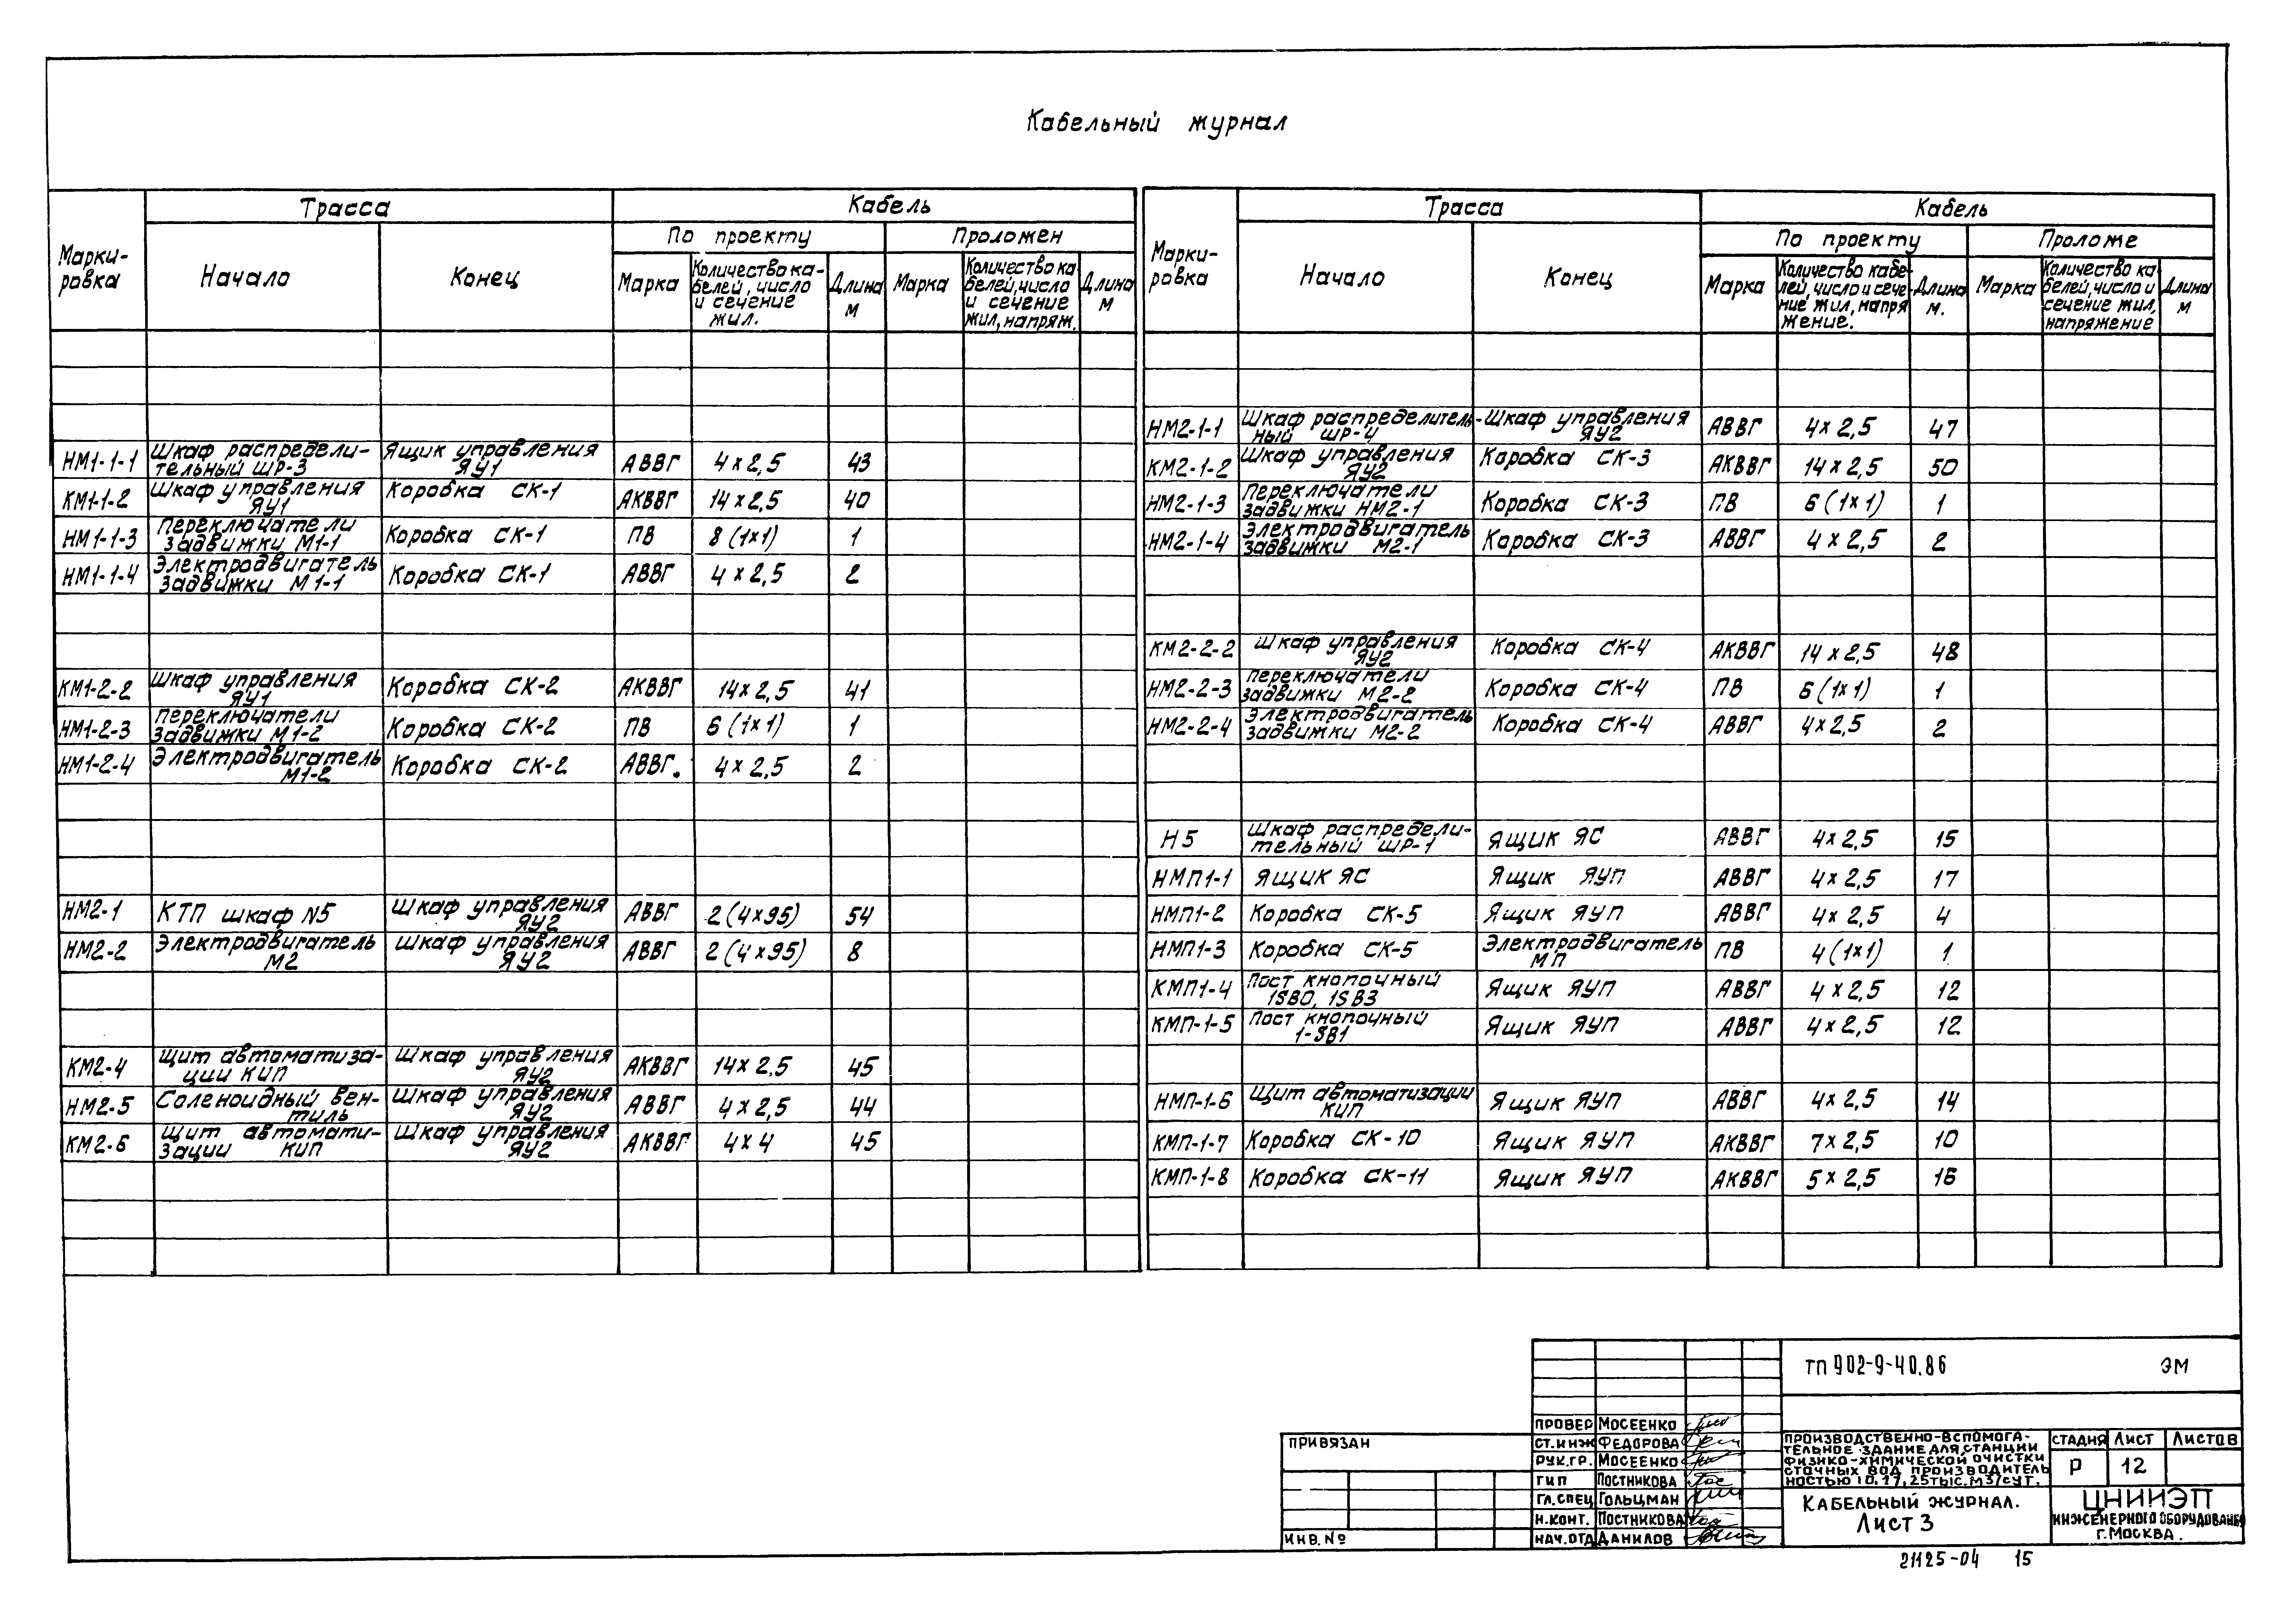 Кабельный журнал
Марки-
ровка
Трасса
Кабель
Начало
Конец
По проекту
Проложен
Марка
Количество ка-
белей, число
и сечение
жил.
Длина
м
Марка
Количество ка
белей, число
и сечение
жил, напряж.
Длина
м
НМ1-1-1 Шкаф распредели-
тельный ШР-3 Ящик управления
ЯУ1 АВВГ 4х2,5 43
КМ1-1-2 Шкаф управления
ЯУ1 Коробка СК-1 АКВВГ 14х2,5 40
НМ1-1-3 Переключатели
задвижки М1-1 Коробка СК-1 ПВ 8(1х1) 1
НМ1-1-4 Электродвигатель
задвижки М1-1 Коробка СК-1 АВВГ 4х2,5 2
КМ1-2-2 Шкаф управления
ЯУ1 Коробка СК-2 АКВВГ 14х2,5 41
НМ1-2-3 Переключатели
задвижки М1-2 Коробка СК-2 ПВ 6(1х1) 1
НМ1-2-4 Электродвигатель
М1-2 Коробка СК-2 АВВГ. 4х2,5 2
НМ2-1 КТП шкаф N5 Шкаф управления
ЯУ2 АВВГ 2(4х95) 54
НМ2-2 Электродвигатель
М2 Шкаф управления
ЯУ2 АВВГ 2(4х95) 8
КМ2-4 Щит автоматиза-
ции КИП Шкаф управления
ЯУ2 АКВВГ 14х2,5 45
НМ2-5 Соленоидный вен-
тиль Шкаф управления
ЯУ2 АВВГ 4х2,5 44
КМ2-6 Щит автомати-
зации КИП Шкаф управления
ЯУ2 АКВВГ 4х4 45
Марки-
ровка
Трасса
Кабель
Начало
Конец
По проекту
Проложе
Марка
Количество кабе-
лей, число и сече-
ние жил, напря
жение.
Длина
м.
Марка
Количество ка-
белей, число и
сечение жил,
напряжение
Длина
м
НМ2-1-1 Шкаф распределитель-
ный ШР-4 Шкаф управления
ЯУ2 АВВГ 4х2,5 47
КМ2-1-2 Шкаф управления
ЯУ2 Коробка СК-3 АКВВГ 14х2,5 50
НМ2-1-3 Переключатели
задвижки НМ2-1 Коробка СК-3 ПВ 6(1х1) 1
НМ2-1-4 Электродвигатель
задвижки М2-1 Коробка СК-3 АВВГ 4х2,5 2
КМ2-2-2 Шкаф управления
ЯУ2 Коробка СК-4 АКВВГ 14х2,5 48
НМ2-2-3 Переключатели
задвижки М2-2 Коробка СК-4 ПВ 6(1х1) 1
НМ2-2-4 Электродвигатель
задвижки М2-2 Коробка СК-4 АВВГ 4х2,5 2
Н5 Шкаф распредели-
тельный ШР-1 Ящик ЯС АВВГ 4х2,5 15
НМП1-1 Ящик ЯС Ящик ЯУП АВВГ 4х2,5 17
НМП1-2 Коробка СК-5 Ящик ЯУП АВВГ 4х2,5 4
НМП1-3 Коробка СК-5 Электродвигатель
МП ПВ 4(1х1) 1
КМП1-4 Пост кнопочный
1SB0, 1SB3 Ящик ЯУП АВВГ 4х2,5 12
КМП-1-5 Пост кнопочный
1-SB1 Ящик ЯУП АВВГ 4х2,5 12
НМП-1-6 Щит автоматизации
КИП Ящик ЯУП АВВГ 4х2,5 14
КМП-1-7 Коробка СК-10 Ящик ЯУП АКВВГ 7х2,5 10
КМП-1-8 Коробка СК-11 Ящик ЯУП АКВВГ 5х2,5 16
ТП 902-9-40.86 ЭМ
ПРИВЯЗАН
ИНВ. №
ПРОВЕР МОСЕЕНКО
СТ.ИНЖ ФЕДОРОВА
РУК.ГР. МОСЕЕНКО
ГИП ПОСТНИКОВА
ГЛ.СПЕЦ ГОЛЬЦМАН
Н.КОНТ. ПОСТНИКОВА
НАЧ.ОТД ДАНИЛОВ
ПРОИЗВОДСТВЕННО-ВСПОМОГА-
ТЕЛЬНОЕ ЗДАНИЕ ДЛЯ СТАНЦИИ
ФИЗИКО-ХИМИЧЕСКОЙ ОЧИСТКИ
СТОЧНЫХ ВОД ПРОИЗВОДИТЕЛЬ
НОСТЬЮ 10, 17, 25 ТЫС. М3/СУТ.
СТАДИЯ ЛИСТ ЛИСТОВ
Р 12
КАБЕЛЬНЫЙ ЖУРНАЛ.
ЛИСТ 3
ЦНИИЭП
ИНЖЕНЕРНОГО ОБОРУДОВАНИЯ
Г. МОСКВА.
21125-04 15